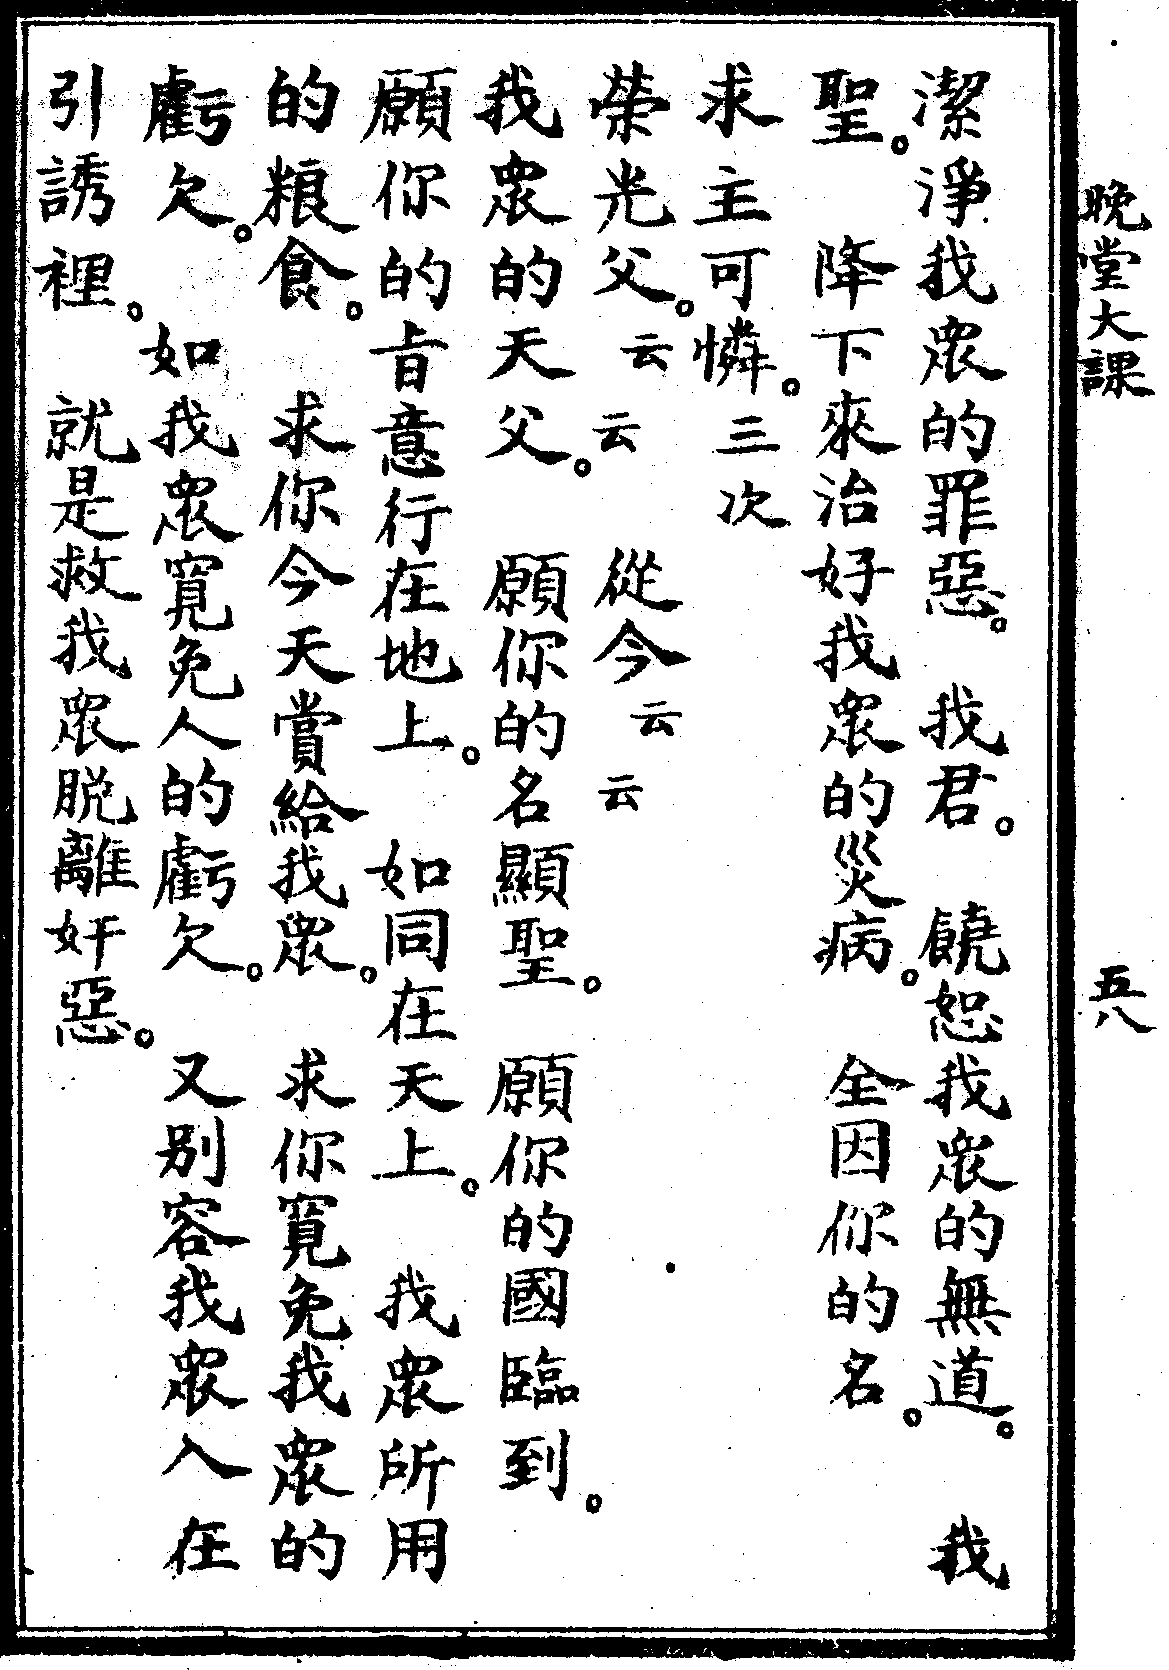 晚堂大課
五八
潔淨我眾的罪惡。我君。饒恕我眾的無道。我
聖。降下來治好我眾的災病。全因你的名。
求主可憐。三次
榮光父。云云從今云云
我眾的天父。願你的名顯聖。願你的國臨到。
願你的旨意行在地上。如同在天上。我眾所用
的粮食。求你今天賞給我眾。求你寬免我眾的
虧欠。如我眾寬免人的虧欠。又別容我眾入在
引誘裡。就是救我眾脱離奸惡。